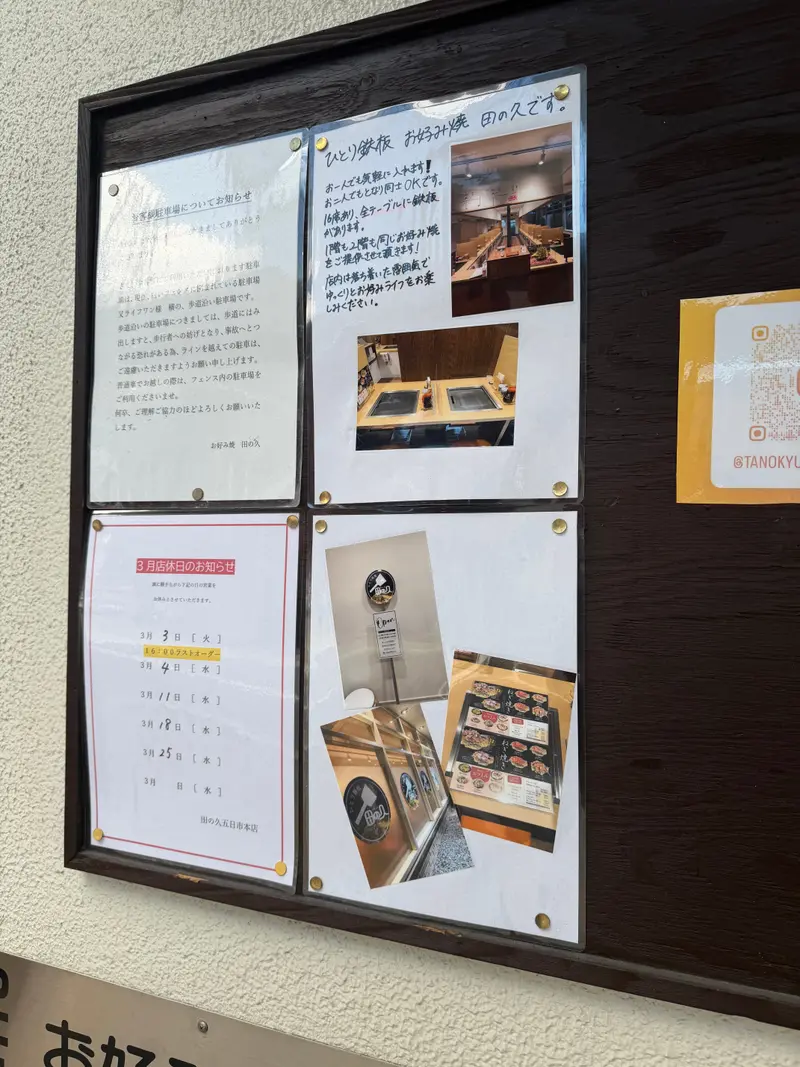 お客様駐車場についてお知らせ
きましてありがとう
ります駐車
又ライフワン様　横の、歩道沿い駐車場です。
歩道沿いの駐車場につきましては、歩道にはみ
出しますと、歩行者への妨げとなり、事故へとつ
ながる恐れがある為、ラインを越えての駐車は、
ご遠慮いただきますようお願い申し上げます。
普通車でお越しの際は、フェンス内の駐車場を
ご利用くださいませ。
何卒、ご理解ご協力のほどよろしくお願いいた
します。
お好み焼　田の久
ひとり鉄板　お好み焼　田の久です。
お一人でも気軽に入れます！
お二人でもとなり同士OKです。
16席あり、全テーブルに鉄板
があります。
1階も2階も同じお好み焼
をご提供させて頂きます！
店内は落ち着いた雰囲気で
ゆっくりとお好みライフをお楽
しみください。
3月店休日のお知らせ
誠に勝手ながら下記の日の営業を
お休みとさせていただきます。
3月 3 日 ［ 火 ］
16：00ラストオーダー
3月 4 日 ［ 水 ］
3月 11 日 ［ 水 ］
3月 18 日 ［ 水 ］
3月 25 日 ［ 水 ］
3月 日 ［ 水 ］
田の久五日市本店
田の久
田の久
ねぎ焼き
ねぎ焼き
@TANOKYU
お好